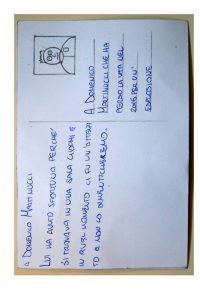 A DOMENICO MARTINUCCI
LUI HA AVUTO SFORTUNA PERCHE'
SI TROVAVA IN UNA SALA GIOCHI E
IN QUEL MOMENTO CI FU UN
TO E NON LO DIMENTICHEREMO.
A DOMENICO
MARTINUCCI CHE HA
PERSO LA VITA NEL
PER UN'
ESPLOSIONE